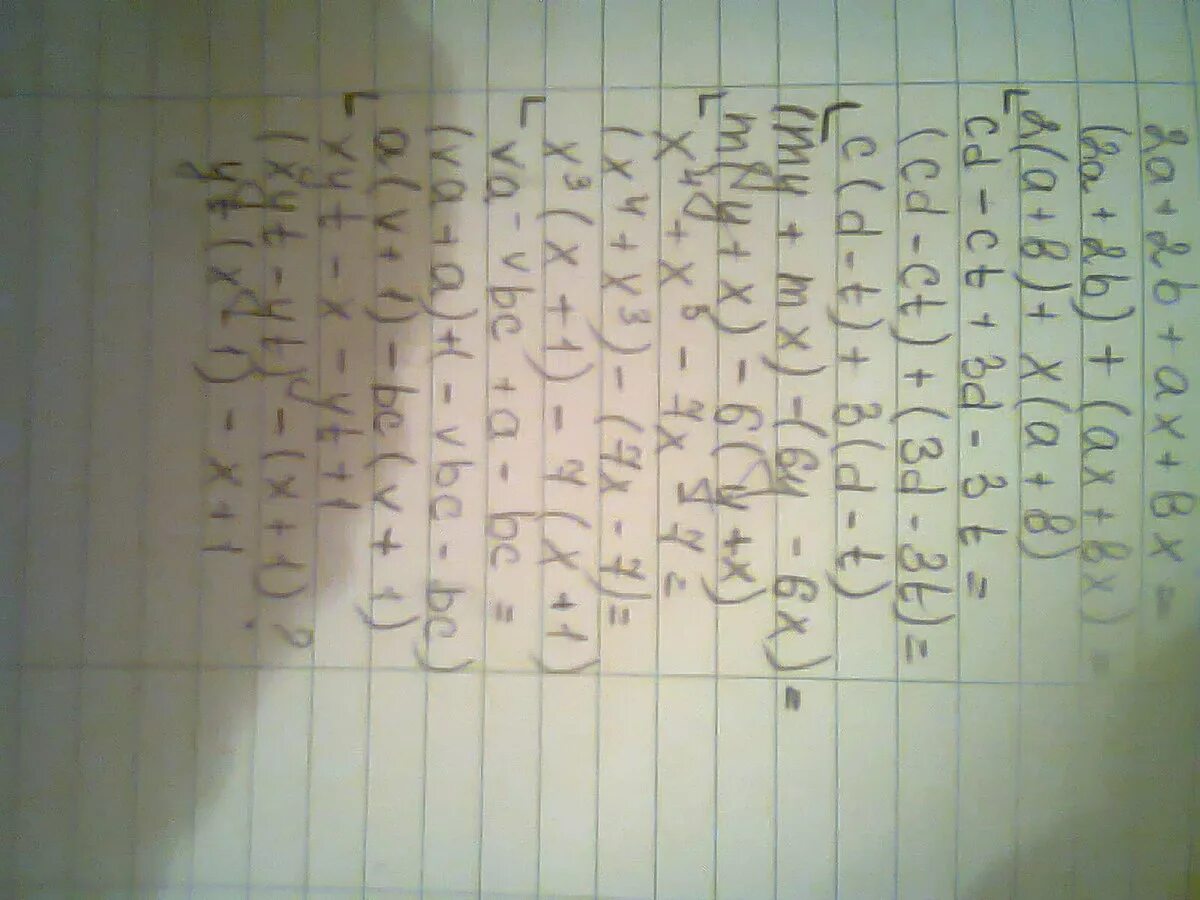 2a + 2b + ax + bx =
(2a + 2b) + (ax + bx) =
2(a + b) + x(a + b)
cd - ct + 3d - 3t =
(cd - ct) + (3d - 3t) =
c(d - t) + 3(d - t)
(my + mx) - (6y - 6x) =
m(y + x) - 6(y + x)
x⁴ + x³ - 7x - 7 =
(x⁴ + x³) - (7x - 7) =
x³(x + 1) - 7(x + 1)
va - vbc + a - bc =
(va + a) + (- vbc - bc)
a(v + 1) - bc(v + 1)
xyt - x - yt + 1
(xyt - yt) - (x + 1) ?
yt(x - 1) - x + 1